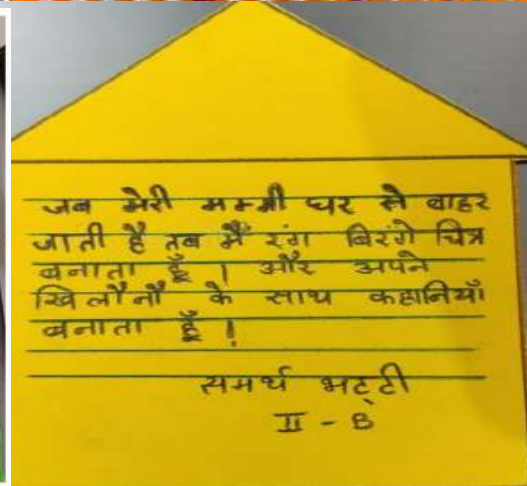 जब मेरी मम्मी घर से बाहर
जाती है तब मैं रंग बिरंगे चित्र
बनाता हूँ । और अपने
खिलौनौ के साथ कहानियाँ
बनाता हूँ ।
समर्थ भट्टी
II - B